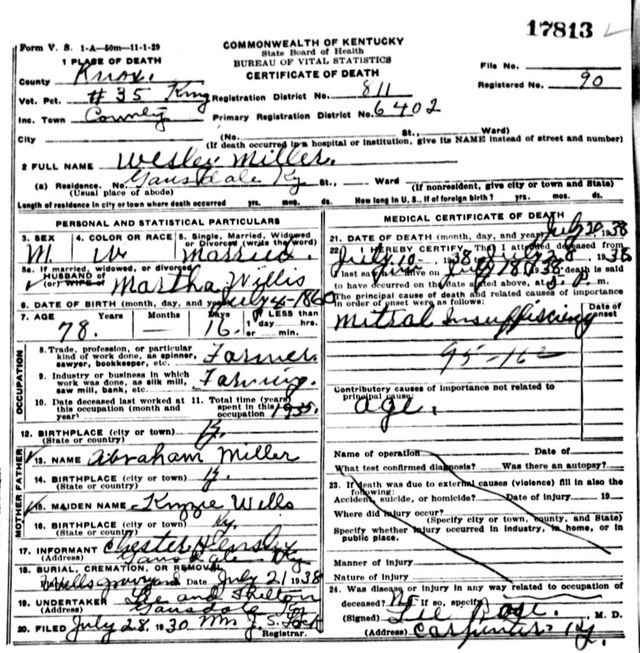 17813
Form V. S. 1-A—50m—11-1-29
COMMONWEALTH OF KENTUCKY
State Board of Health
BUREAU OF VITAL STATISTICS
CERTIFICATE OF DEATH
1 PLACE OF DEATH
County Knox.
File No.
Registered No. 90
Vot. Pct. #35 King Registration District No. 811
Inc. Town County Primary Registration District No. 6402
City (No. St., Ward)
(If death occurred in a hospital or institution, give its NAME instead of street and number)
2 FULL NAME Wesley Miller.
(a) Residence. No. Gausdale Ky St., Ward
(Usual place of abode) (If nonresident, give city or town and State)
Length of residence in city or town where death occurred yrs. mos. ds. How long in U. S., if of foreign birth? yrs. mos. ds.
PERSONAL AND STATISTICAL PARTICULARS
3. SEX M. 4. COLOR OR RACE W 5. Single, Married, Widowed or Divorced (write the word) Married.
5a. If married, widowed, or divorced
HUSBAND of
(or) WIFE of Martha Willis
6. DATE OF BIRTH (month, day, and year) July 4-1860
7. AGE 78. Years — Months 16. Days If LESS than 1 day hrs. or min.
OCCUPATION
8. Trade, profession, or particular kind of work done, as spinner, sawyer, bookkeeper, etc. Farmer
9. Industry or business in which work was done, as silk mill, saw mill, bank, etc. Farming.
10. Date deceased last worked at this occupation (month and year)
11. Total time (years) spent in this occupation 1935.
12. BIRTHPLACE (city or town)
(State or country) Ky.
FATHER
13. NAME Abraham Miller
14. BIRTHPLACE (city or town)
(State or country) Ky.
MOTHER
15. MAIDEN NAME Wells
16. BIRTHPLACE (city or town) Ky.
(State or country)
17. INFORMANT Chester Hensley
(Address) Gausdale Ky.
18. BURIAL, CREMATION, OR REMOVAL
graveyard Date July 21 1938
19. UNDERTAKER Lee and Shelton
(Address) Gausdale Ky
20. FILED July 28, 1930 Mrs J. S. Registrar.
MEDICAL CERTIFICATE OF DEATH
21. DATE OF DEATH (month, day, and year) July 20, 1938
22. I HEREBY CERTIFY, That I attended deceased from
July 10— 1938 July 28 1938
I last saw alive on July 18 1938 death is said
to have occurred on the date stated above, at P. m.
The principal cause of death and related causes of importance in order of onset were as follows: Date of onset
Mitral Insufficiency
95-162
Contributory causes of importance not related to principal cause:
age.
Name of operation Date of
What test confirmed diagnosis? Was there an autopsy?
23. If death was due to external causes (violence) fill in also the following:
Accident, suicide, or homicide? Date of injury 19
Where did injury occur?
(Specify city or town, county, and State)
Specify whether injury occurred in industry, in home, or in public place.
Manner of injury
Nature of injury
24. Was disease or injury in any way related to occupation of
deceased? No If so, specify
(Signed) M. D.
(Address) Carpenter Ky.